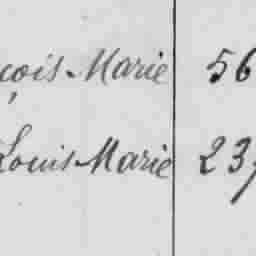 çois Marie 56
Louis Marie 237